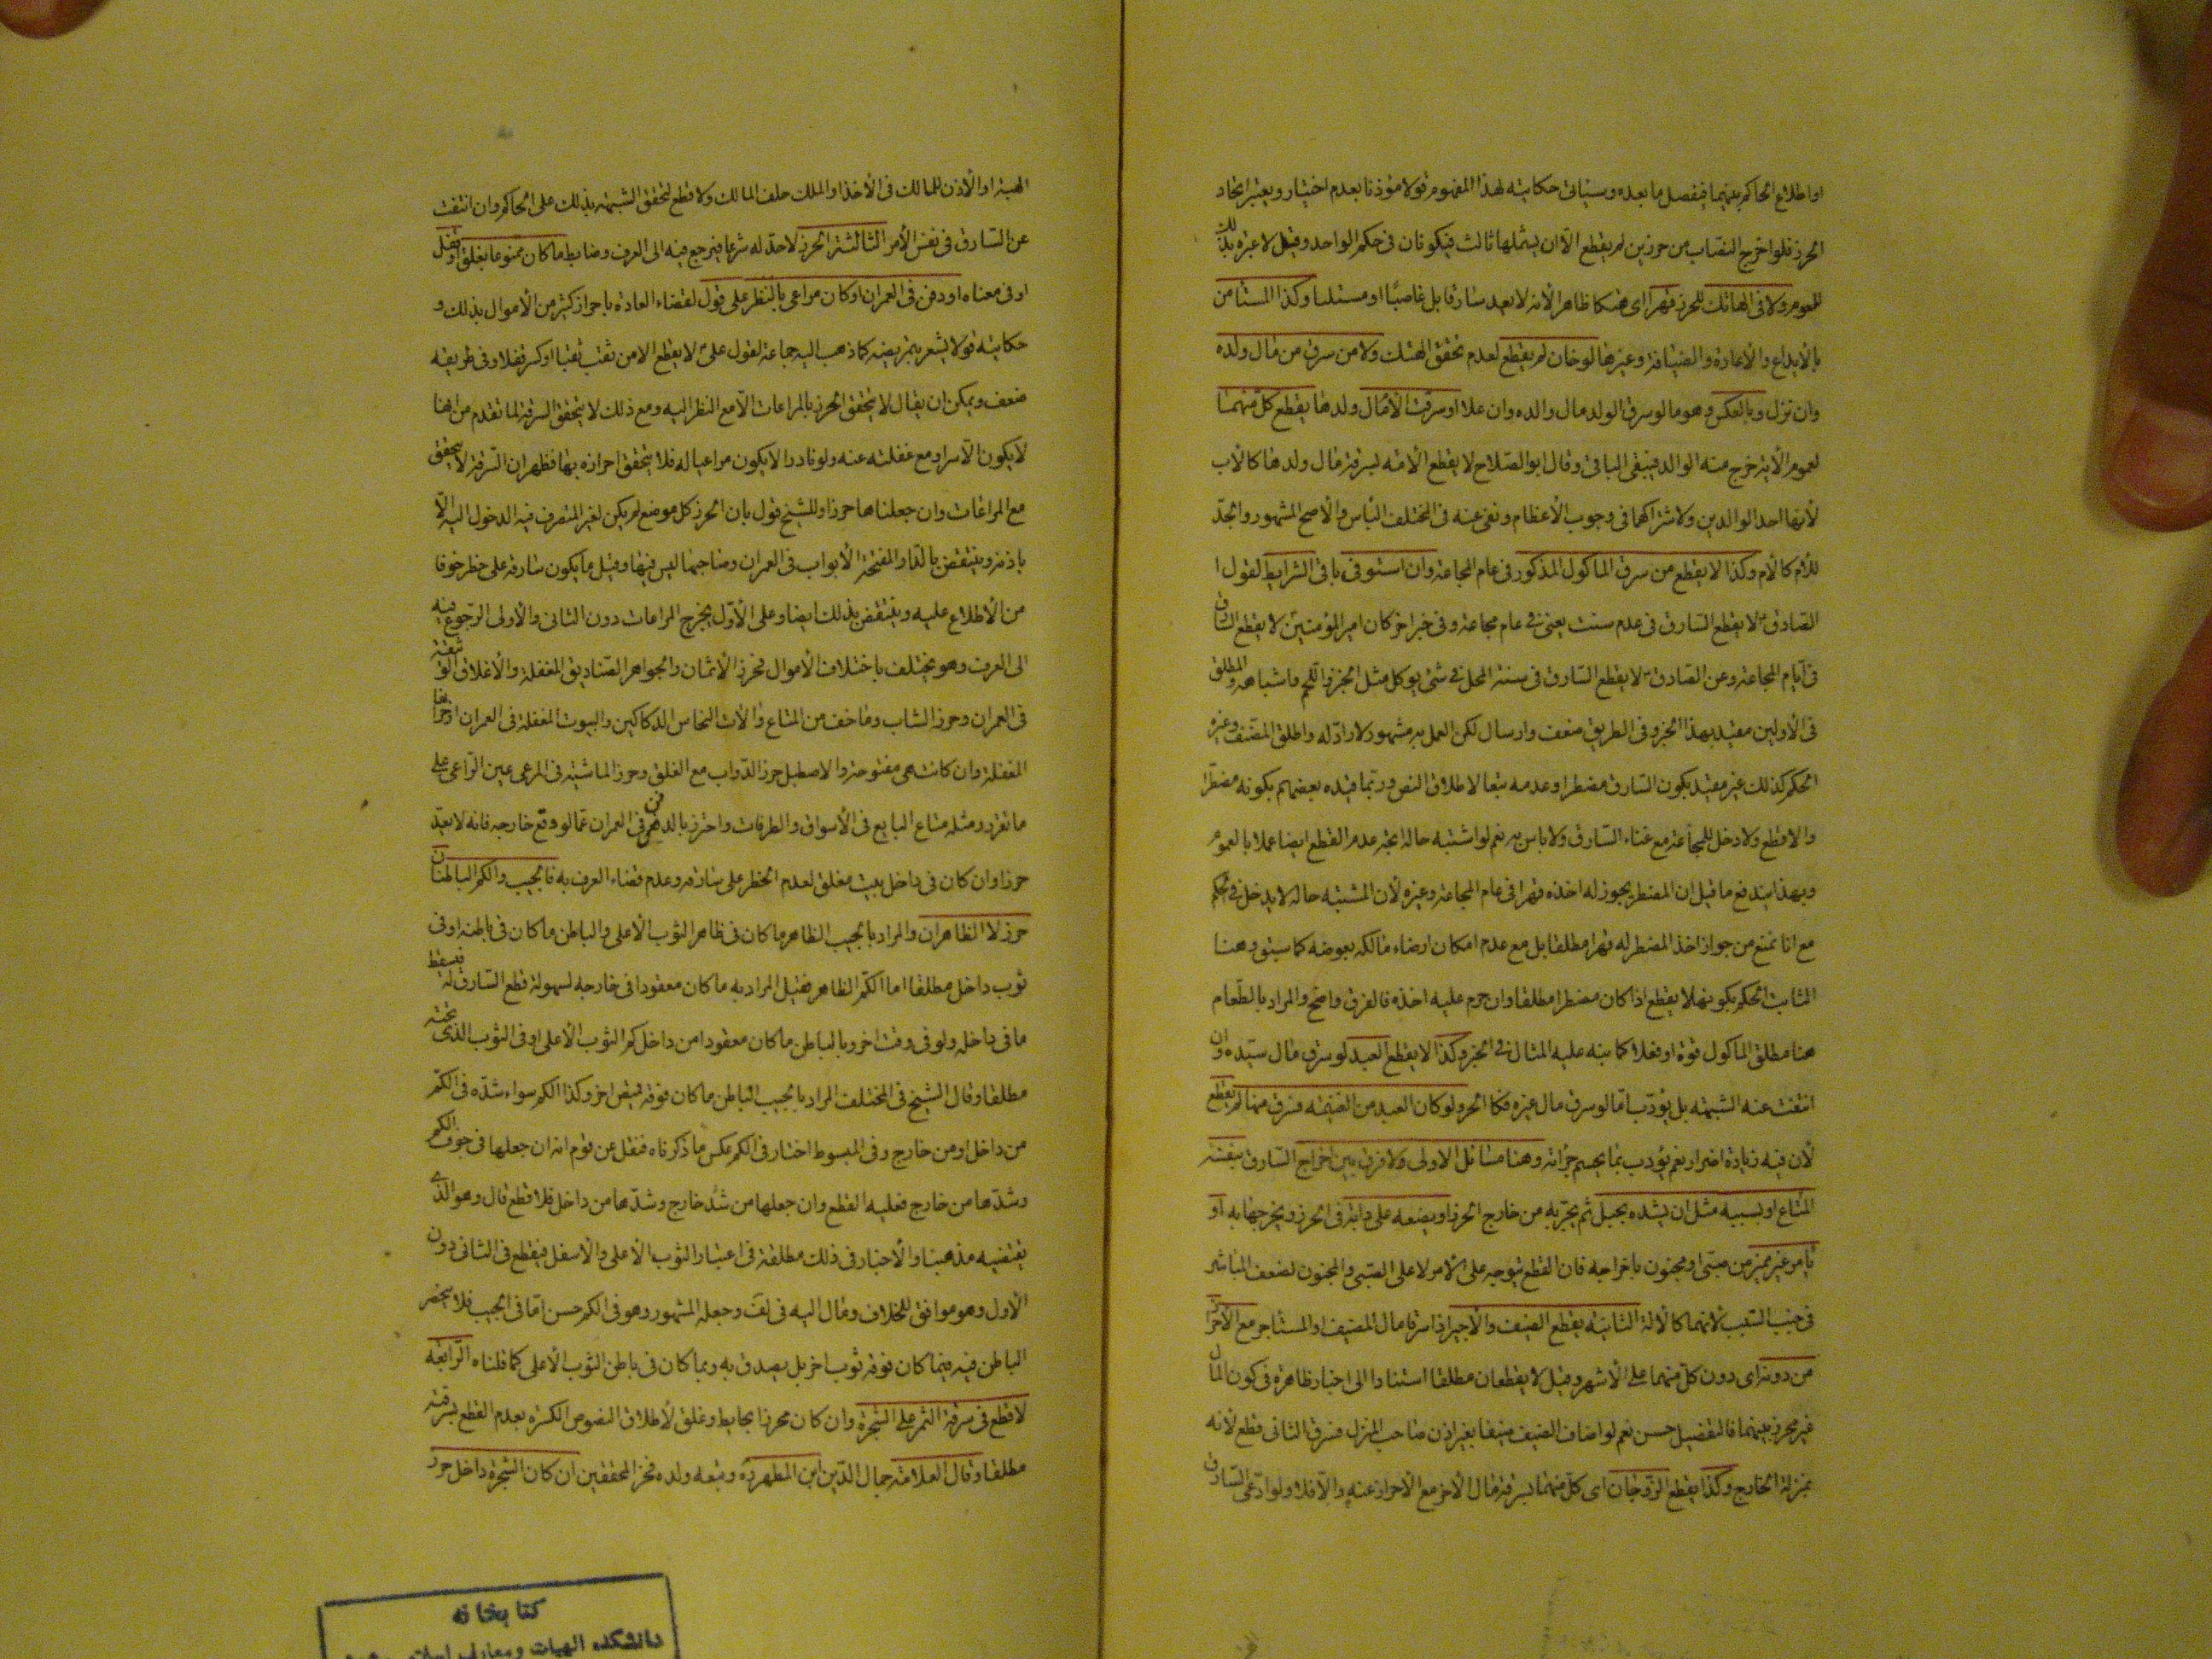 او اطلاع الحاكم بينهما فيفصل ما بعده وسيأتى حكايته لهذا المفهوم قولا مؤذنا بعدم اختياره ويعتبر اتحاد
الحرز فلو اخرج النصاب من حرزين لم يقطع الا ان يشملها ثالث فيكونان فى حكم الواحد وقيل لا عبرة بذلك
للعموم ولا فى الهاتك للحرز قهرا اى هتكا ظاهرا لانه لا يعد سارقا بل غاصبًا او مستلبا وكذا المستامن
بالايداع والاعارة والضيافة وغيرها لو خان لم يقطع لعدم تحقق الهتك ولا من سرق من مال ولده
وان نزل وبالعكس وهو ما لو سرق الولد مال والده وان علا او سرقت الام مال ولدها يقطع كل منهما
لعموم الاية خرج منه الوالد فيبقى الباقى وقال ابو الصلاح لا يقطع الام بسرقة مال ولدها كالاب
لانها احد الوالدين ولاشتراكهما فى وجوب الاعظام ونفى عنه فى المختلف الباس والاصح المشهور والجد
للام كالام وكذا لا يقطع من سرق الماكول المذكور فى عام المجاعة وان استوفى باقى الشرايط لقول
الصادق ع لا يقطع السارق فى عام سنت يعنى فى عام مجاعة وفى خبر اخر كان امير المؤمنين ع لا يقطع السارق
فى ايام المجاعة وعن الصادق ع لا يقطع السارق فى سنة المحل فى شئ يوكل مثل الخبز واللحم واشباهه والمطلق
فى الاولين مقيد بهذا الخبر وفى الطريق ضعف وارسال لكن العمل به مشهور لا راد له واطلق المصنف وغيره
الحكم كذلك غير مقيد بكون السارق مضطرا وعدمه تبعا لاطلاق النص وربما قيده بعضهم بكونه مضطرا
والا قطع ولا دخل للمجاعة مع غناء السارق ولا باس به نعم لو اشتبه حاله اتجه عدم القطع ايضا عملا بالعموم
وبهذا يندفع ما قيل ان المضطر يجوز له اخذه قهرا فى عام المجاعة وغيره لان المشتبه حاله لا يدخل فى الحكم
مع انا نمنع من جواز اخذ المضطر له قهرا مطلقا بل مع عدم امكان ارضاء مالكه بعوضه كما سبق وهنا
الثابت الحكم بكونه لا يقطع اذا كان مضطرا مطلقا وان حرم عليه اخذه فالفرق واضح والمراد بالطعام
هنا مطلق الماكول قوة او فعلا كما ينبه عليه المثال فى الخبز وكذا لا يقطع العبد لو سرق مال سيده وان
انتفت عنه الشبهة بل يؤدب امّا لو سرق مال غيره فكالحر ولو كان العبد من الغنيمة فسرق منها لم يقطع
لان فيه زيادة اضرار نعم يؤدب بما يحسم جراته وهنا مسائل الاولى لا فرق بين اخراج السارق بنفسه
المتاع او بسببه مثل ان يشده بحبل ثم يجتر به من خارج الحرز او يضعه على دابة فى الحرز ويخرجها به او
يامر غير مميز من صبى او مجنون باخراجه فان القطع يتوجه على الامر لا على الصبى والمجنون لضعف المباشر
فى جنب السبب لانهما كالالة الثانية يقطع الضيف والاجير اذا سرقا مال المضيف او المستاجر مع الاحراز
من دونه اى دون كل منهما على الاشهر وقيل لا يقطعان مطلقا استنادا الى اخبار ظاهرة فى كون المال
غير محرز عنهما فالتفصيل حسن نعم لو اضاف الضيف ضيفا بغير اذن صاحب المنزل فسرق الثانى قطع لانه
بمنزلة الخارج وكذا يقطع الزوجان اى كل منهما بسرقة مال الاخر مع الاحراز عنه والا فلا ولو ادعى السارق
الهبة او الاذن للمالك فى الاخذ او الملك حلف المالك ولا قطع لتحقق الشبهة بذلك على الحاكم وان انتفت
عن السارق فى نفس الامر الثالثة الحرز لا حد له شرعا فيرجع فيه الى العرف وضابطه ما كان ممنوعا بغلق او قفل
او فى معناه او دفن فى العمران او كان مراعى بالنظر على قول لقضاء العادة باحراز كثير من الاموال بذلك و
حكايته قولا يشعر بتمريضه كما ذهب اليه جماعة لقول على ع لا يقطع الا من نقب نقبا او كسر قفلا وفى طريقه
ضعف ويمكن ان يقال لا يتحقق الحرز بالمراعات الا مع النظر اليه ومع ذلك لا يتحقق السرقة لما تقدم من انها
لا يكون الا سرا ومع غفلته عنه ولو نادرا لا يكون مراعيا له فلا يتحقق احرازه بها فظهر ان السرقة لا يتحقق
مع المراعات وان جعلناها حرزا وللشيخ قول بان الحرز كل موضع لم يكن لغير المتصرف فيه الدخول اليه الا
باذنه وينتقض بالدار المفتحة الابواب فى العمران وصاحبها ليس فيها وقيل ما يكون سارقه على خطر خوفا
من الاطلاع عليه وينتقض بذلك ايضا وعلى الاول يخرج المراعات دون الثانى والاولى الرجوع فيه
الى العرف وهو يختلف باختلاف الاموال فحرز الاثمان والجواهر الصناديق المقفلة والاغلاق الوثيقة
فى العمران وحرز الثياب وما خف من المتاع والات النحاس الدكاكين والبيوت المقفلة فى العمران او خزائنها
المقفلة وان كانت هى مفتوحة والاصطبل حرز الدواب مع الغلق وحرز الماشية فى المرعى عين الراعى على
ما تقرر ومثله متاع البايع فى الاسواق والطرقات واحترز بالدفن فى العمران عما لو وقع خارجه فانه لا يعد
حرزا وان كان فى داخل بيت مغلق لعدم الخطر على سارقه وعدم قضاء العرف به فالجيب والكم الباطنان
حرز لا الظاهران والمراد بالجيب الظاهر ما كان فى ظاهر الثوب الاعلى والباطن ما كان فى باطنه او فى
ثوب داخل مطلقا اما الكم الظاهر فقيل المراد به ما كان معقودا فى خارجه لسهولة قطع السارق له فيسقط
ما فى داخله ولو فى وقت اخر وبالباطن ما كان معقودا من داخل كم الثوب الاعلى او فى الثوب الذى تحته
مطلقا وقال الشيخ فى المختلف المراد بالجيب الباطن ما كان فوقه قميص اخر وكذا الكم سواء شده فى الكم
من داخل او من خارج وفى المبسوط اختار فى الكم عكس ما ذكرناه فنقل عن قوم انه ان جعلها فى جوف الكم
وشدها من خارج فعليه القطع وان جعلها من خارج وشدها من داخل فلا قطع قال وهو الذى
يقتضيه مذهبنا والاخبار فى ذلك مطلقة فى اعتبار الثوب الاعلى والاسفل فيقطع فى الثانى دون
الاول وهو موافق للخلاف ومال اليه فى لف وجعله المشهور وهو فى الكم حسن امّا فى الجيب فلا ينحصر
الباطن فيه فيما كان فوقه ثوب اخر بل يصدق به وبما كان فى باطن الثوب الاعلى كما قلناه الرابعة
لا قطع فى سرقة الثمر على الشجرة وان كان محرزا بحايط وغلق لاطلاق النصوص الكثيره بعدم القطع بسرقته
مطلقا وقال العلامة جمال الدين ابن المطهر ره وتبعه ولده فخر المحققين ان كان الشجرة داخل حرز
كتابخانه
دانشكده الهيات ومعارف اسلامى